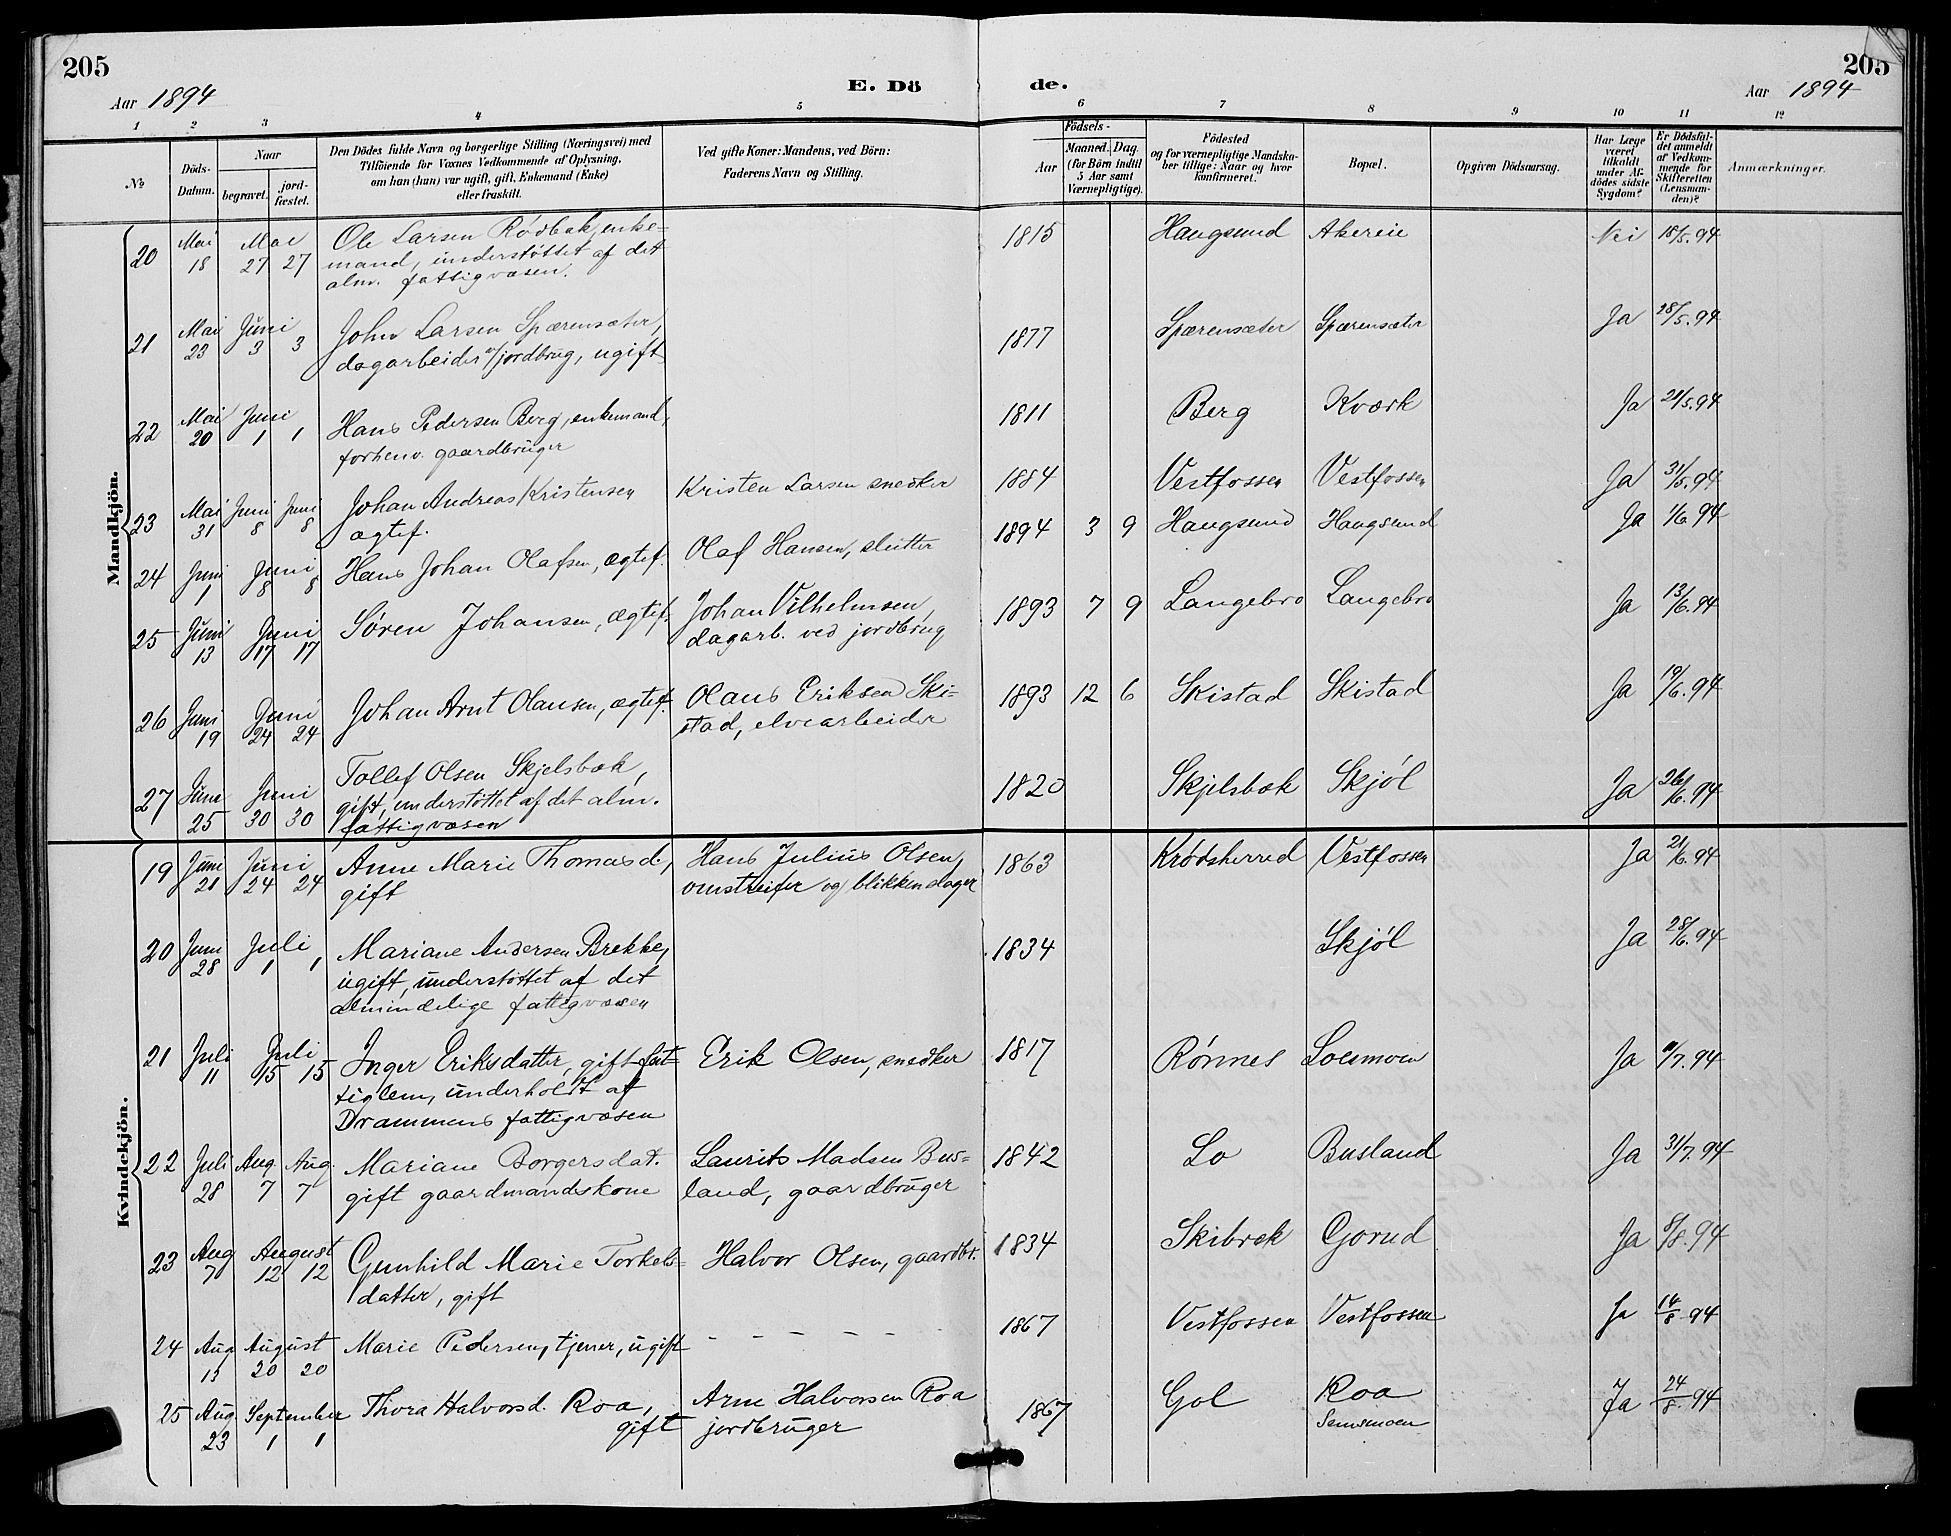 205
Aar 1894
E. Dö
de.
205
Aar 1894
1 2 3 4 5 6 7 8 9 10 11 12
No
Döds-
Datum.
Naar
begravet.
jord-
fæstet.
Den Dödes fulde Navn og borgerlige Stilling (Næringsvei) med
Tilföiende for Voxnes Vedkommende af Oplysning,
om han (hun) var ugift, gift, Enkemand (Enke)
eller fraskilt.
Ved gifte Koner: Mandens, ved Börn:
Faderens Navn og Stilling.
Födsels-
Aar
Maaned. Dag.
(for Börn indtil
5 Aar samt
Værnepligtige).
Födested
og for værnepligtige Mandska-
ber tillige: Naar og hvor
konfirmeret.
Bopæl.
Opgiven Dödsaarsag.
Har Læge
været
tilkaldt
under Af-
dödes sidste
Sygdom?
Er Dödsfal-
det anmeldt
af Vedkom-
mende for
Skifteretten
(Lensman-
den)?
Anmærkninger.
Mandkjön.
20 Mai 18 Mai 27 27 Ole Larsen Rødbak, enke-
mand, understöttet af det
alm. fattigvæsen.
1815 Haugsund Akereie Nei 18/5.94
21 Mai 23 Juni 3 3 John Larsen Spærensæter,
dagarbeider v/jordbrug, ugift
1877 Spærensæter Spærensæter Ja 28/5.94
22 Mai 20 Juni 1 1 Hans Pedersen Berg, enkemand,
forhenv. gaardbruger
1811 Berg Kværk Ja 21/5.94
23 Mai 31 Juni 8 Juni 8 Johan Andreas Kristensen
ægtef.
Kristen Larsen snedker
1884 Vestfossen Vestfossen Ja 31/5.94
24 Juni 1 Juni 8 8 Hans Johan Olafsen, ægtef.
Olaf Hansen, slutter
1894 3 9 Haugsund Haugsund Ja 1/6.94
25 Juni 13 Juni 17 17 Søren Johansen, ægtef.
Johan Vilhelmsen,
dagarb. ved jordbrug
1893 7 9 Langebro Langebro Ja 13/6.94
26 Juni 19 Juni 24 24 Johan Arnt Olausen, ægtef.
Olaus Eriksen Ski-
stad, elvearbeider
1893 12 6 Skistad Skistad Ja 19/6.94
27 Juni 25 Juni 30 30 Tollef Olsen Skjelsbæk,
gift, understöttet af det alm.
fattigvæsen
1820 Skjelsbæk Skjøl Ja 26/6.94
Kvindekjön.
19 Juni 21 Juni 24 24 Anne Marie Thomasd.,
gift
Hans Julius Olsen,
omstreifer og blikkenslager
1863 Krødsherred Vestfossen Ja 21/6.94
20 Juni 28 Juli 1 1 Mariane Andersen Brekke,
ugift, understöttet af det
almindelige fattigvæsen
1834 Skjøl Ja 28/6.94
21 Juli 11 Juli 15 15 Inger Eriksdatter, gift fat-
tiglem, underholdt af
Drammens fattigvæsen
Erik Olsen, snedker
1817 Rønnes Loesmoen Ja 11/7.94
22 Juli 28 Aug 7 Aug. 7 Mariane Borgersdat.
gift gaardmandskone
Laurits Madsen Bus-
land, gaardbruger
1842 Lo Busland Ja 31/7.94
23 Aug 7 August 12 12 Gunhild Marie Torkels-
datter, gift
Halvor Olsen, gaardbr.
1834 Skibrek Gorud Ja 8/8.94
24 Aug 13 August 20 20 Marie Pedersen, tjener, ugift
- - - - - -
1867 Vestfossen Vestfossen Ja 14/8.94
25 Aug 23 September 1 1 Thora Halvorsd. Roa,
gift
Arne Halvorsen Roa
jordbruger
1867 Gol Roa Ja 24/8.94